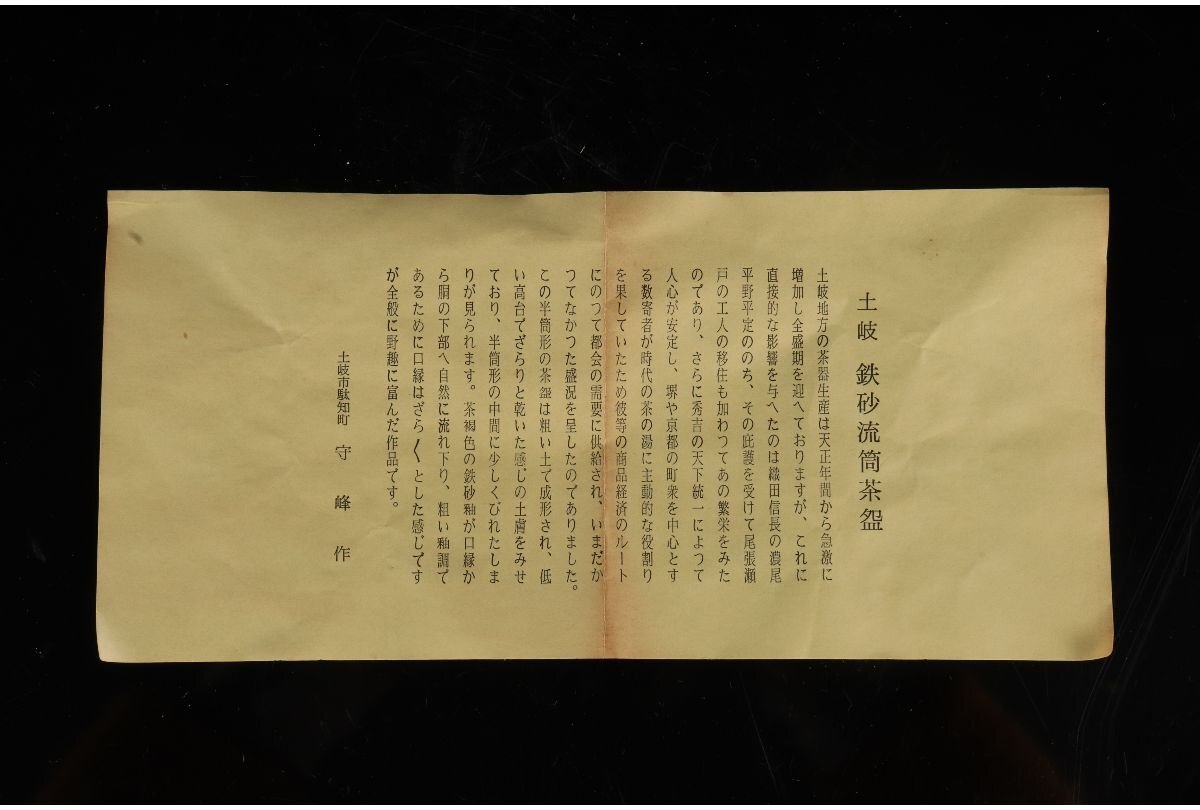 土岐　鉄砂流筒茶盌
土岐地方の茶器生産は天正年間から急激に
増加し全盛期を迎へておりますが、これに
直接的な影響を与へたのは織田信長の濃尾
平野平定ののち、その庇護を受けて尾張瀬
戸の工人の移住も加わつてあの繁栄をみた
のであり、さらに秀吉の天下統一によつて
人心が安定し、堺や京都の町衆を中心とす
る数寄者が時代の茶の湯に主動的な役割り
を果していたため彼等の商品経済のルート
にのつて都会の需要に供給され、いまだか
つてなかつた盛況を呈したのでありました。
この半筒形の茶盌は粗い土で成形され、低
い高台でざらりと乾いた感じの土膚をみせ
ており、半筒形の中間に少しくびれたしま
りが見られます。茶褐色の鉄砂釉が口縁か
ら胴の下部へ自然に流れ下り、粗い釉調で
あるために口縁はざら〱とした感じです
が全般に野趣に富んだ作品です。
土岐市駄知町　守峰作